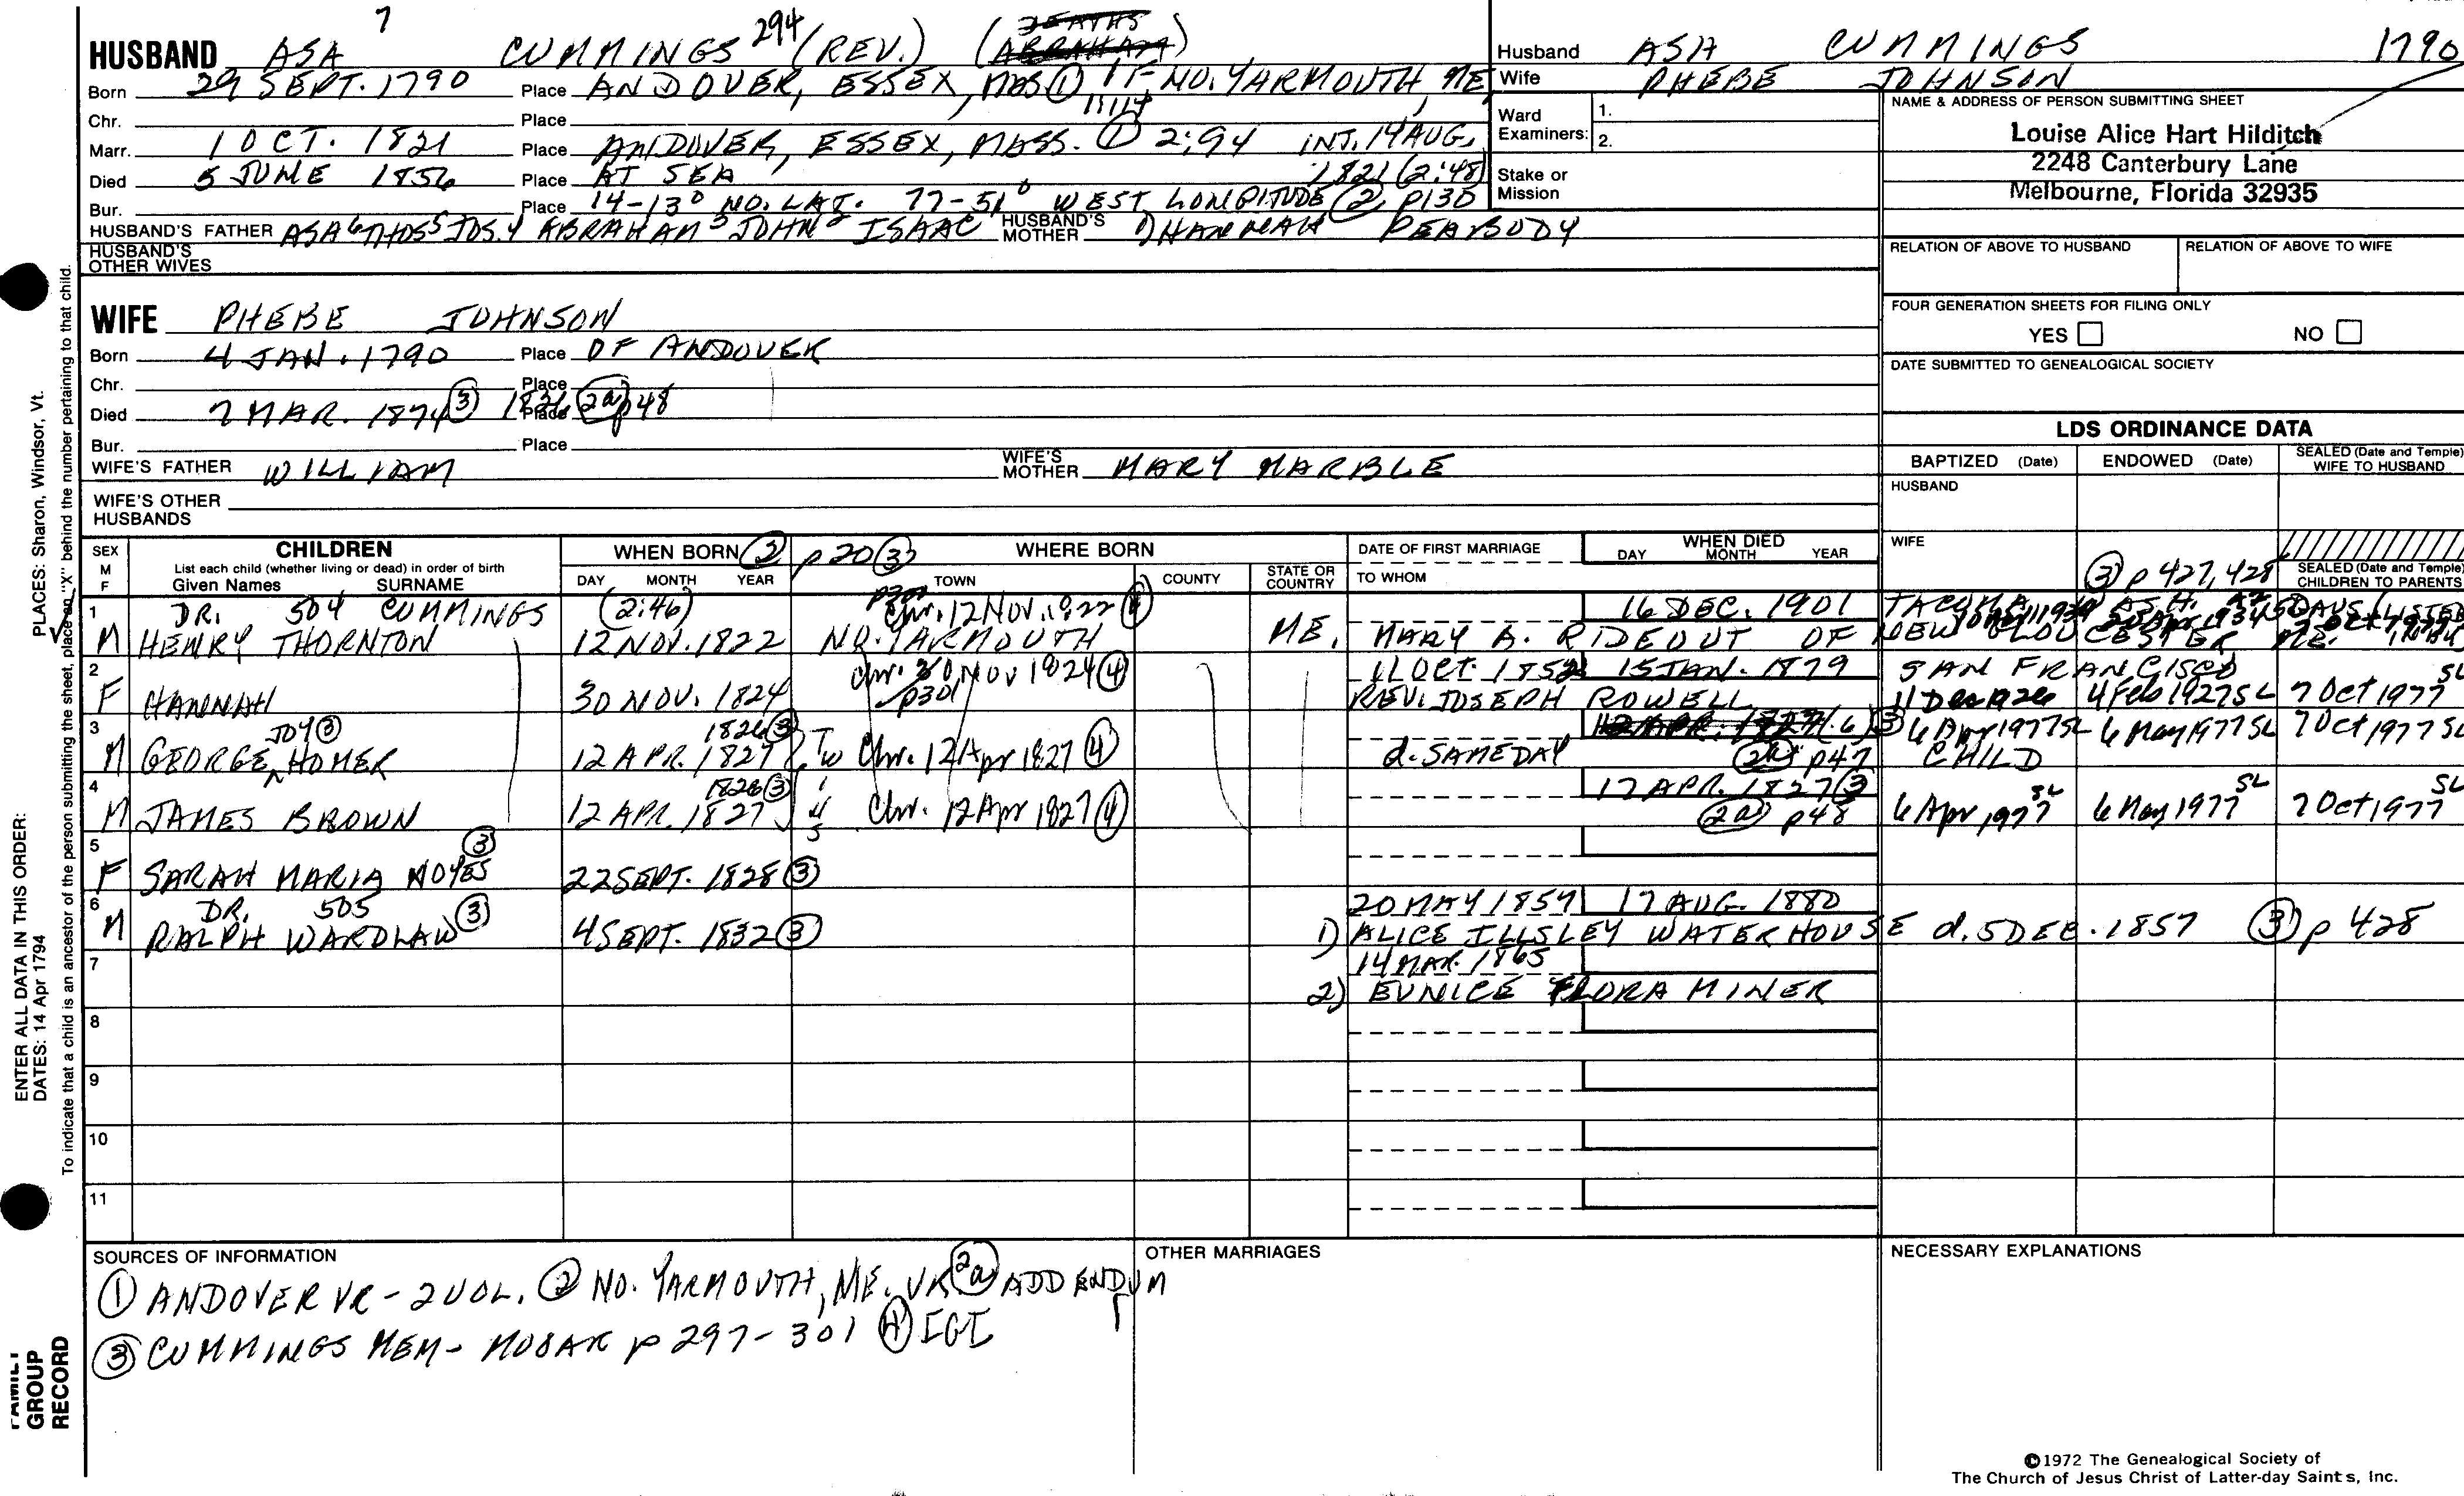 7
HUSBAND ASA CUMMINGS 294 (REV.) (DEATHS
Born 29 SEPT. 1790 Place ANDOVER, ESSEX, MAS ① OF NO. YARMOUTH ME
Chr. Place
Marr. 1 OCT. 1821 Place ANDOVER, ESSEX, MASS. ① 2:94 INT. 14 AUG,
Died 5 JUNE 1856 Place AT SEA 1821 (2:48)
Bur. Place 14-13° NO. LAT. 77-51° WEST LONGITUDE ② P130
HUSBAND'S FATHER ASA 6 THOS 5 JOS. 4 ABRAHAM 3 JOHN 2 ISAAC HUSBAND'S MOTHER HANNAH PEABODY
HUSBAND'S OTHER WIVES
WIFE PHEBE JOHNSON
Born 4 JAN. 1790 Place OF ANDOVER
Chr. Place
Died 7 MAR. 1874 ③ Place 2a p48
Bur. Place
WIFE'S FATHER WILLIAM WIFE'S MOTHER MARY MARBLE
WIFE'S OTHER HUSBANDS
Husband ASA CUMMINGS 1790
Wife PHEBE JOHNSON
Ward Examiners: 1. 2.
Stake or Mission
NAME & ADDRESS OF PERSON SUBMITTING SHEET
Louise Alice Hart Hilditch
2248 Canterbury Lane
Melbourne, Florida 32935
RELATION OF ABOVE TO HUSBAND RELATION OF ABOVE TO WIFE
FOUR GENERATION SHEETS FOR FILING ONLY
YES NO
DATE SUBMITTED TO GENEALOGICAL SOCIETY
LDS ORDINANCE DATA
BAPTIZED (Date) ENDOWED (Date) SEALED (Date and Temple) WIFE TO HUSBAND
HUSBAND
WIFE
③ p 427, 428
SEALED (Date and Temple) CHILDREN TO PARENTS
SEX M F
CHILDREN
List each child (whether living or dead) in order of birth
Given Names SURNAME
WHEN BORN ② p20 ③ WHERE BORN
DAY MONTH YEAR TOWN COUNTY STATE OR COUNTRY
DATE OF FIRST MARRIAGE
TO WHOM
WHEN DIED
DAY MONTH YEAR
1 DR. 504 CUMMINGS (2:46) Chr. 12 NOV. 1822 ④ 16 DEC. 1901 TACOMA
M HENRY THORNTON 12 NOV. 1822 NO. YARMOUTH ME, MARY A. RIDEOUT OF NEW GLOUCESTER ME.
2 Chr. 30 NOV 1824 ④ 11 OCT. 1852 15 JAN. 1879 SAN FRANCISCO SL
F HANNAH 30 NOV. 1824 p301 REV. JOSEPH ROWELL 11 Dec 1926 4 Feb 1927 SL 7 Oct 1977
3 JOY ③ 1826 ③ 6 Apr 1977 SL 6 May 1977 SL 7 Oct 1977 SL
M GEORGE HOMER 12 APR. 1827 Tw Chr. 12 Apr 1827 ④ d. SAME DAY 2a p47 CHILD
4 1826 ③ 17 APR. 1827 ③
M JAMES BROWN 12 APR. 1827 Chr. 12 Apr 1827 ④ 2a p48 6 Apr 1977 SL 6 May 1977 SL 7 Oct 1977 SL
5
F SARAH MARIA NOYES ③ 22 SEPT. 1828 ③
6 DR. 505 20 MAY 1857 17 AUG. 1880
M RALPH WARDLAW ③ 4 SEPT. 1832 ③ 1) ALICE ILLSLEY WATERHOUSE d. 5 DEC. 1857 ③ p 428
7 14 MAR. 1865
2) EUNICE FLORA MINER
8
9
10
11
SOURCES OF INFORMATION
① ANDOVER VR - 2 VOL. ② NO. YARMOUTH, ME. VR 2a ADDENDUM
③ CUMMINGS MEM - MOOAR p 297-301 ④ IGI
OTHER MARRIAGES
NECESSARY EXPLANATIONS
©1972 The Genealogical Society of
The Church of Jesus Christ of Latter-day Saints, Inc.
PLACES: Sharon, Windsor, Vt.
ENTER ALL DATA IN THIS ORDER:
DATES: 14 Apr 1794
To indicate that a child is an ancestor of the person submitting the sheet, place an "X" behind the number pertaining to that child.
FAMILY GROUP RECORD